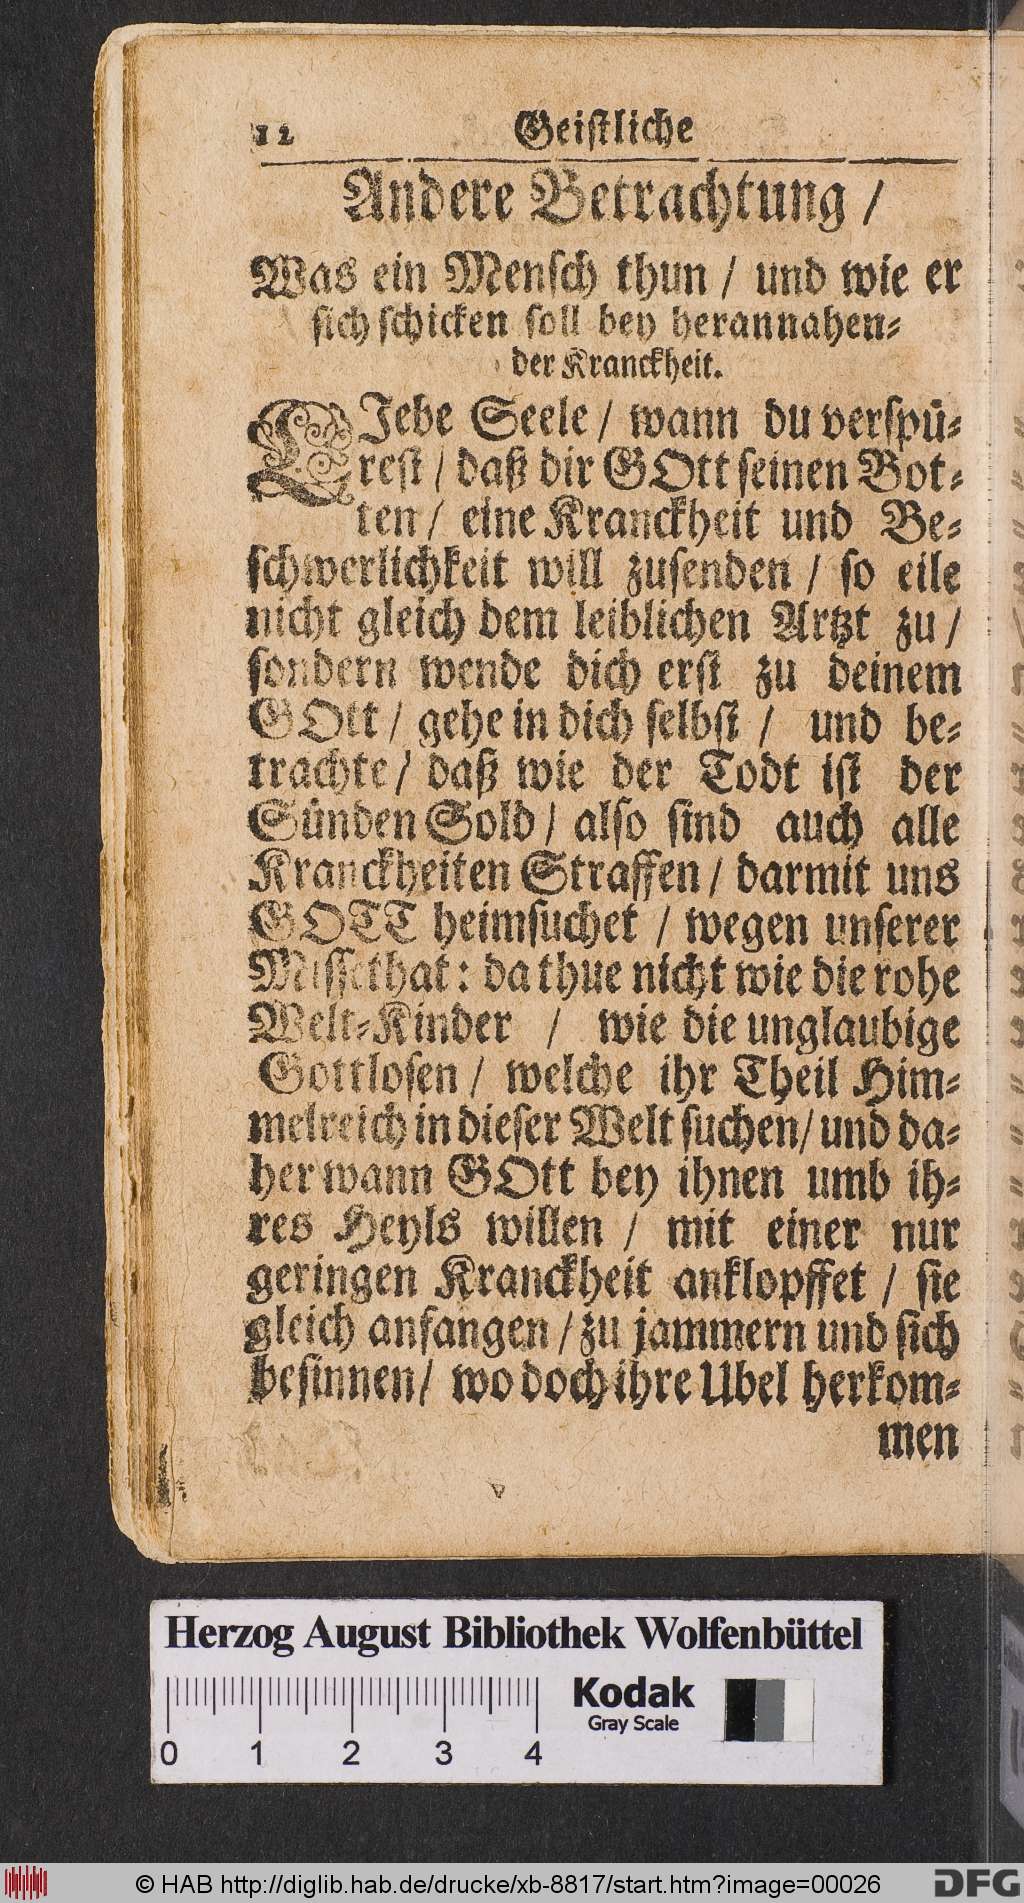 12 Geistliche
Andere Betrachtung /
Was ein Mensch thun / und wie er
sich schicken soll bey herannahen-
der Kranckheit.
LIebe Seele / wann du verspü-
rest / daß dir GOtt seinen Bot-
ten / eine Kranckheit und Be-
schwerlichkeit will zusenden / so eile
nicht gleich dem leiblichen Artzt zu /
sondern wende dich erst zu deinem
GOtt / gehe in dich selbst / und be-
trachte / daß wie der Todt ist der
Sünden Sold / also sind auch alle
Kranckheiten Straffen / darmit uns
GOTT heimsuchet / wegen unserer
Missethat: da thue nicht wie die rohe
Welt-Kinder / wie die unglaubige
Gottlosen / welche ihr Theil Him-
melreich in dieser Welt suchen / und da-
her wann GOtt bey ihnen umb ih-
res Heyls willen / mit einer nur
geringen Kranckheit anklopffet / sie
gleich anfangen / zu jammern und sich
besinnen / wo doch ihre Ubel herkom-
men
Herzog August Bibliothek Wolfenbüttel
0 1 2 3 4
Kodak
Gray Scale
© HAB http://diglib.hab.de/drucke/xb-8817/start.htm?image=00026
DFG